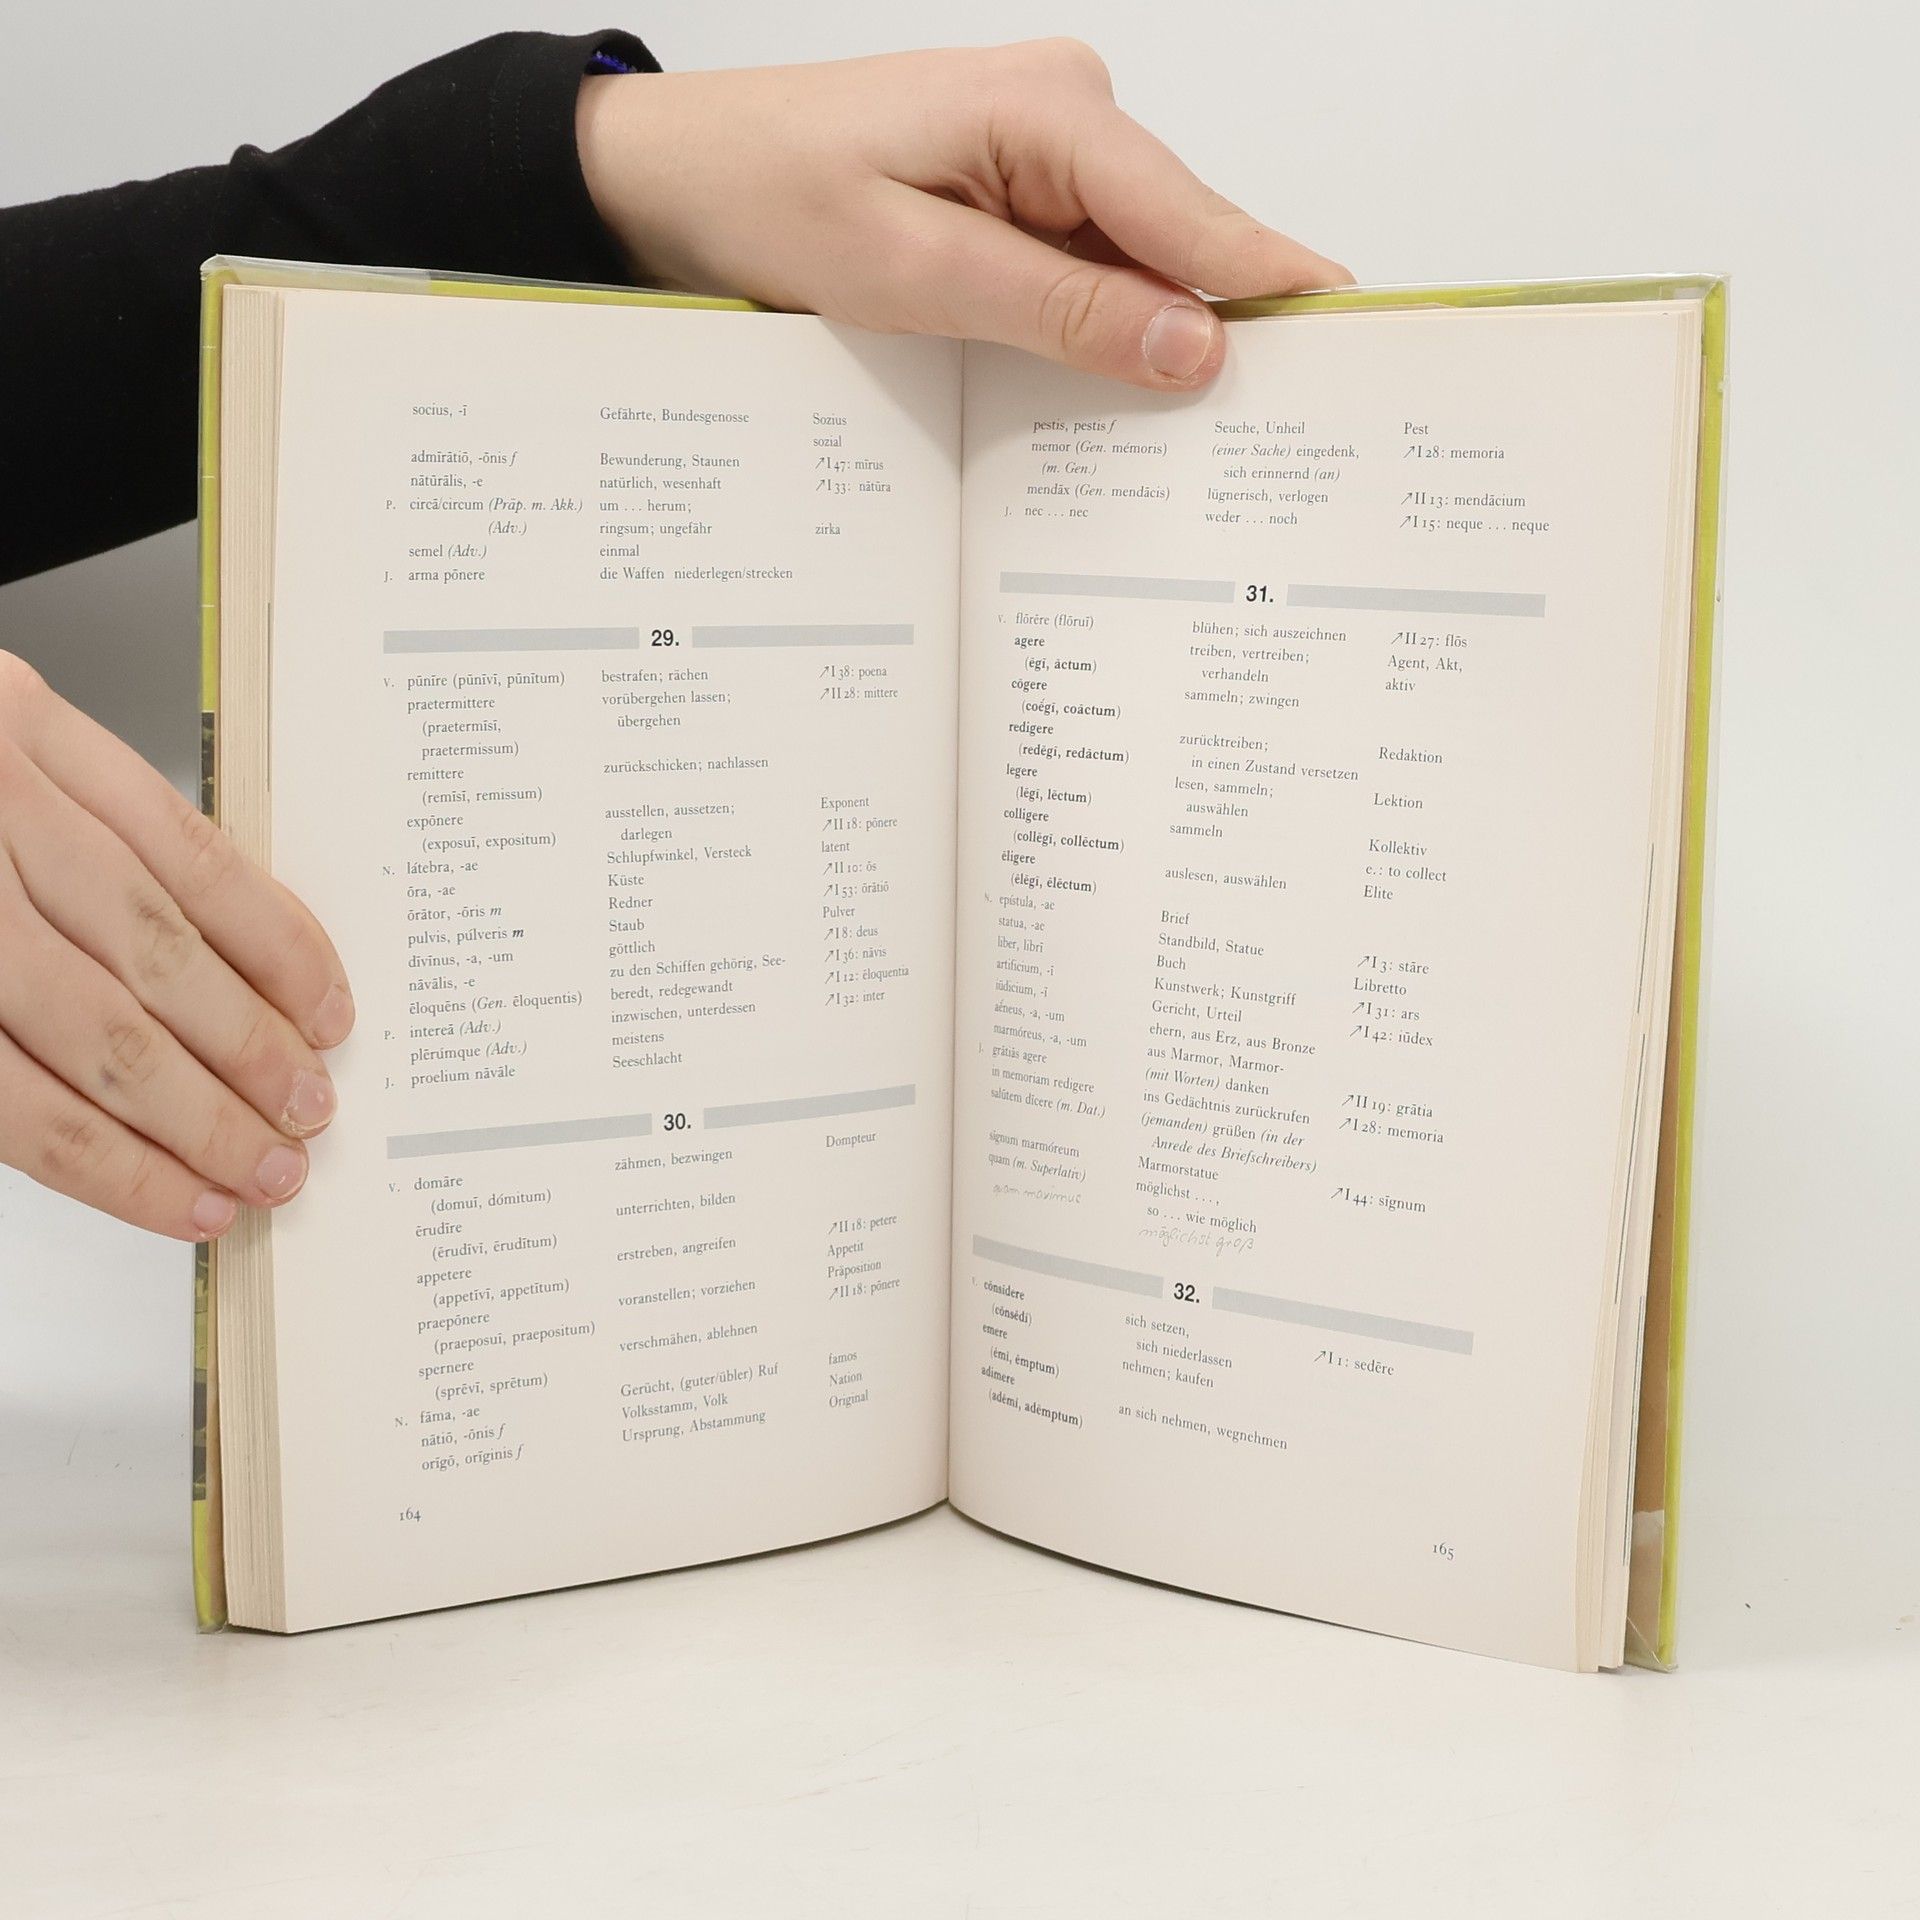 socius, -ī Gefährte, Bundesgenosse Sozius
sozial
admīrātiō, -ōnis f Bewunderung, Staunen ↗I 47: mīrus
nātūrālis, -e natürlich, wesenhaft ↗I 33: nātūra
P. circā/circum (Präp. m. Akk.) um ... herum;
(Adv.) ringsum; ungefähr zirka
semel (Adv.) einmal
J. arma pōnere die Waffen niederlegen/strecken
29.
V. pūnīre (pūnīvī, pūnītum) bestrafen; rächen ↗I 38: poena
praetermittere vorübergehen lassen; ↗II 28: mittere
(praetermīsī, übergehen
praetermissum)
remittere zurückschicken; nachlassen
(remīsī, remissum)
expōnere ausstellen, aussetzen; Exponent
(exposuī, expositum) darlegen ↗II 18: pōnere
N. látebra, -ae Schlupfwinkel, Versteck latent
ōra, -ae Küste ↗II 10: ōs
ōrātor, -ōris m Redner ↗I 53: ōrātiō
pulvis, púlveris m Staub Pulver
dīvīnus, -a, -um göttlich ↗I 8: deus
nāvālis, -e zu den Schiffen gehörig, See- ↗I 36: nāvis
ēloquēns (Gen. ēloquentis) beredt, redegewandt ↗I 12: ēloquentia
P. intereā (Adv.) inzwischen, unterdessen ↗I 32: inter
plērúmque (Adv.) meistens
J. proelium nāvāle Seeschlacht
30.
V. domāre zähmen, bezwingen Dompteur
(domuī, dómitum)
ērudīre unterrichten, bilden
(ērudīvī, ērudītum)
appetere erstreben, angreifen ↗II 18: petere
(appetīvī, appetītum) Appetit
praepōnere voranstellen; vorziehen Präposition
(praeposuī, praepositum) ↗II 18: pōnere
spernere verschmähen, ablehnen
(sprēvī, sprētum)
N. fāma, -ae Gerücht, (guter/übler) Ruf famos
nātiō, -ōnis f Volksstamm, Volk Nation
orīgō, orīginis f Ursprung, Abstammung Original
164
pestis, pestis f Seuche, Unheil Pest
memor (Gen. mémoris) (einer Sache) eingedenk, ↗I 28: memoria
(m. Gen.) sich erinnernd (an)
mendāx (Gen. mendācis) lügnerisch, verlogen ↗II 13: mendācium
J. nec ... nec weder ... noch ↗I 15: neque ... neque
31.
V. flōrēre (flōruī) blühen; sich auszeichnen ↗II 27: flōs
agere treiben, vertreiben; Agent, Akt,
(ēgī, āctum) verhandeln aktiv
cōgere sammeln; zwingen
(coēgī, coāctum)
redigere zurücktreiben; Redaktion
(redēgī, redāctum) in einen Zustand versetzen
legere lesen, sammeln; Lektion
(lēgī, lēctum) auswählen
colligere sammeln Kollektiv
(collēgī, collēctum) e.: to collect
ēligere auslesen, auswählen Elite
(ēlēgī, ēlēctum)
N. epístula, -ae Brief
statua, -ae Standbild, Statue ↗I 3: stāre
liber, librī Buch Libretto
artificium, -ī Kunstwerk; Kunstgriff ↗I 31: ars
iūdicium, -ī Gericht, Urteil ↗I 42: iūdex
aēneus, -a, -um ehern, aus Erz, aus Bronze
marmóreus, -a, -um aus Marmor, Marmor-
J. grātiās agere (mit Worten) danken ↗II 19: grātia
in memoriam redigere ins Gedächtnis zurückrufen ↗I 28: memoria
salūtem dīcere (m. Dat.) (jemanden) grüßen (in der
Anrede des Briefschreibers)
signum marmóreum Marmorstatue ↗I 44: sīgnum
quam (m. Superlativ) möglichst ...,
so ... wie möglich
quam maximus möglichst groß
32.
V. cōnsīdere sich setzen, ↗I 1: sedēre
(cōnsēdī) sich niederlassen
emere nehmen; kaufen
(ēmī, ēmptum)
adimere an sich nehmen, wegnehmen
(adēmī, adēmptum)
165